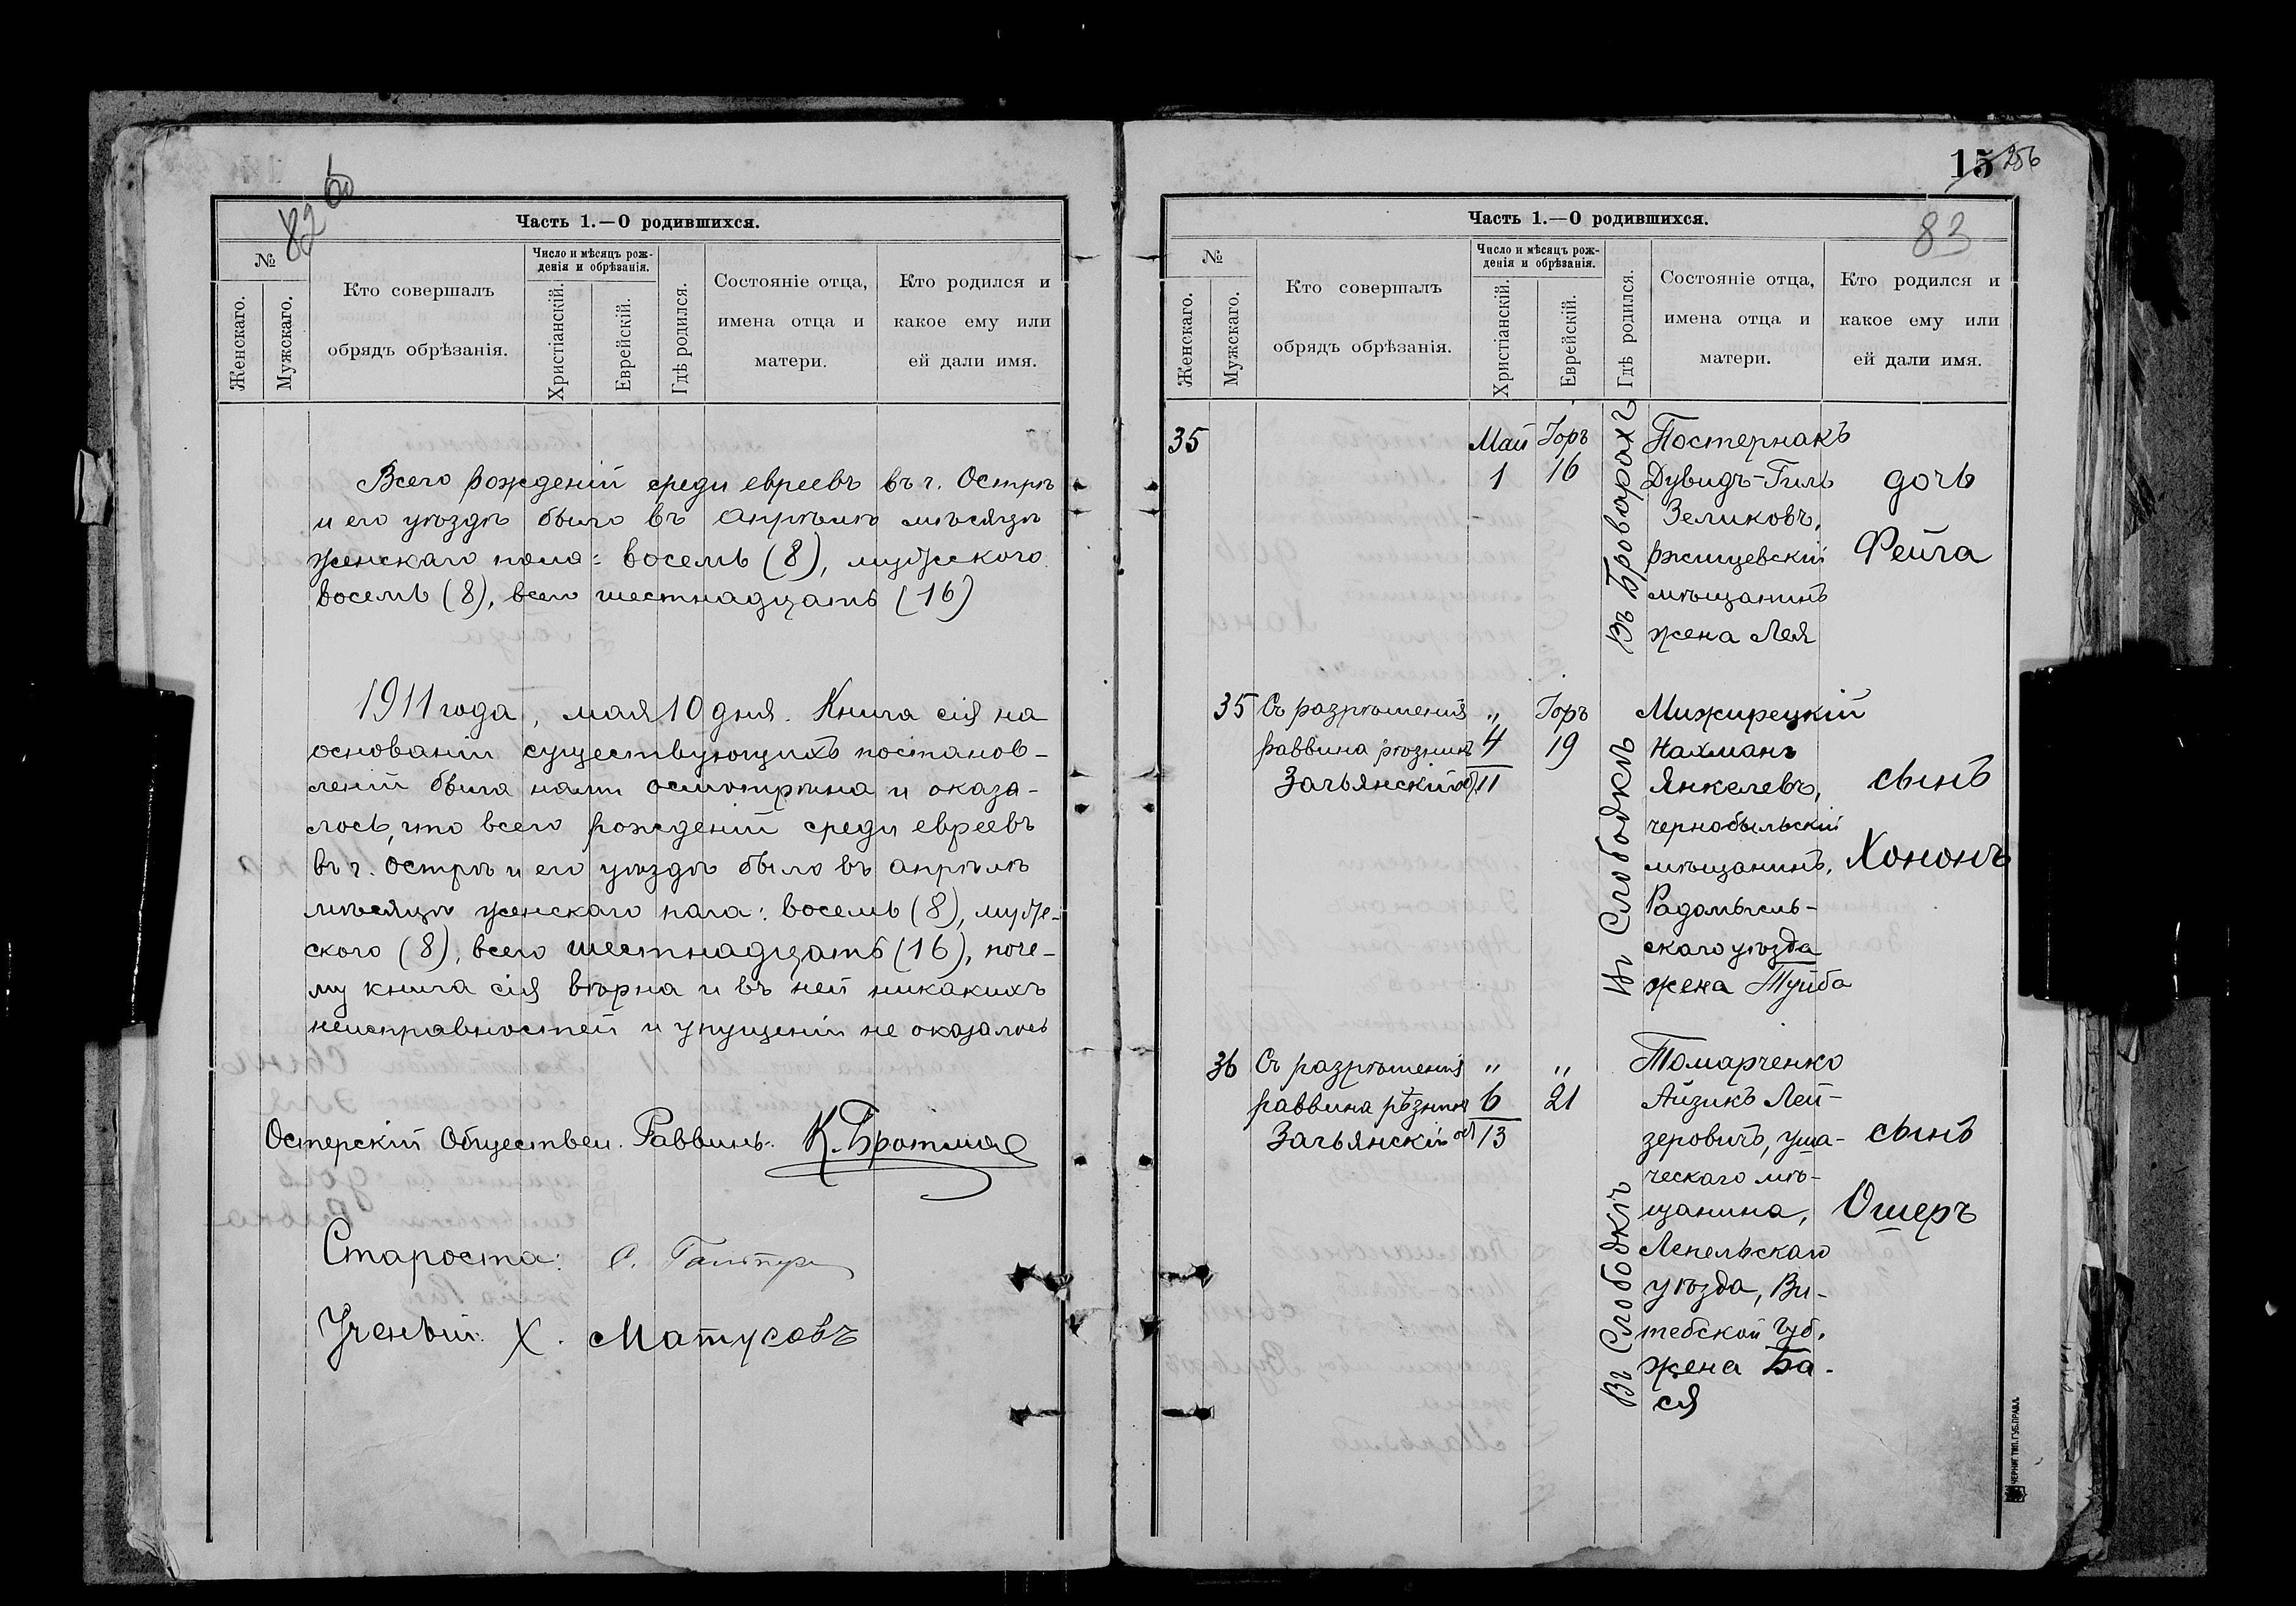 82
Часть 1.—О родившихся.
№
Женскаго.
Мужскаго.
Кто совершалъ
обрядъ обрѣзанія.
Число и мѣсяцъ рож-
денія и обрѣзанія.
Христіанскій.
Еврейскій.
Гдѣ родился.
Состояніе отца,
имена отца и
матери.
Кто родился и
какое ему или
ей дали имя.
Всего рожденій среди евреевъ въ г. Острѣ
и его уѣздѣ было въ апрѣлѣ мѣсяцѣ
женскаго пола: восемь (8), мужскаго
восемь (8), всего шестнадцать (16)
1911 года, мая 10 дня. Книга сія на
основаніи существующихъ постанов-
леній была нами осмотрѣна и оказа-
лось, что всего рожденій среди евреевъ
въ г. Острѣ и его уѣздѣ было въ апрѣлѣ
мѣсяцѣ женскаго пола: восемь (8), муж-
ского (8), всего шестнадцать (16), поче-
му книга сія вѣрна и въ ней никакихъ
неисправностей и упущеній не оказалось
Остерскій Обществен. Раввинъ:
Староста:
Ученый: Х. Матусовъ
15 256
83
Часть 1.—О родившихся.
№
Женскаго.
Мужскаго.
Кто совершалъ
обрядъ обрѣзанія.
Число и мѣсяцъ рож-
денія и обрѣзанія.
Христіанскій.
Еврейскій.
Гдѣ родился.
Состояніе отца,
имена отца и
матери.
Кто родился и
какое ему или
ей дали имя.
35 Май Іоръ Постернакъ
1 16 Дувидъ-Гиль дочь
Зеликовъ,
ржищевскій Фейга
мѣщанинъ
жена Лея
Въ Броварахъ
35 Съ разрѣшенія „ Іоръ Мижирецкій
раввина рѣзникъ 4 19 Нахманъ
Зачьянскій об. 11 Янкелевъ, сынъ
чернобыльскій
мѣщанинъ, Хононъ
Радомысль-
скаго уѣзда
жена Туйба
Въ Слободкѣ
36 Съ разрѣшенія „ „ Томарченко
раввина рѣзникъ 6 21 Айзикъ Лей-
Зачьянскій об. 13 зеровичъ, уша- сынъ
ческаго мѣ-
щанина, Ошеръ
Лепельскаго
уѣзда, Ви-
тебской губ.
жена Ба-
ся
Въ Слободкѣ
ЧЕРНИГ. ТИП. ГУБ. ПРАВЛ.